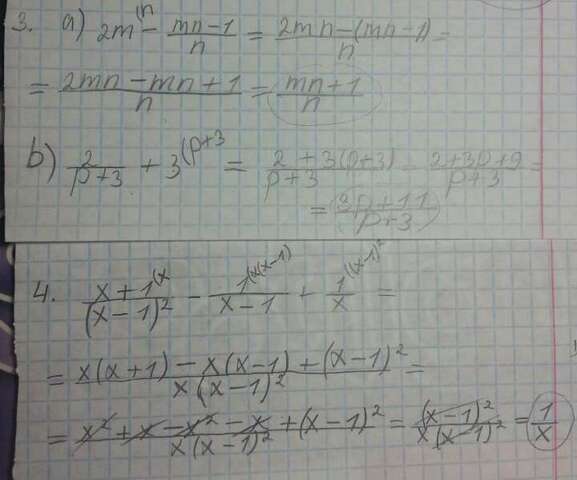 3. a) 2m^(n − (mn−1)/n = (2mn−(mn−1))/n =
= (2mn−mn+1)/n = (mn+1)/n
b) 2/(p+3) + 3^(p+3 = (2+3(p+3))/(p+3) = (2+3p+9)/(p+3) =
= (3p+11)/(p+3)
4. (x+1)^(x/(x−1)² − 1^(x(x−1)/(x−1) + 1^((x−1)²/x =
= (x(x+1)−x(x−1)+(x−1)²)/(x(x−1)²) =
= (x²+x−x²−x+(x−1)²)/(x(x−1)²) = (x−1)²/(x(x−1)²) = 1/x